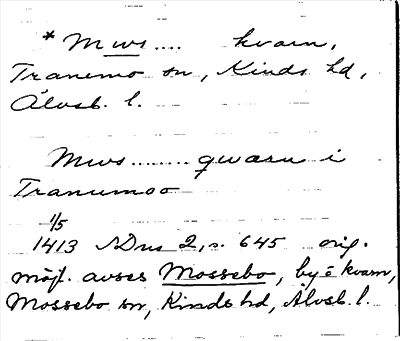 * Mws.... kvarn,
Tranemo sn, Kinds hd,
Älvsb. l.
Mws........qwarn i
Tranumoo
1/5
1413 SDns 2, s. 645 orig.
möjl. avses Mossebo, by o kvarn,
Mossebo sn, Kinds hd, Älvsb. l.